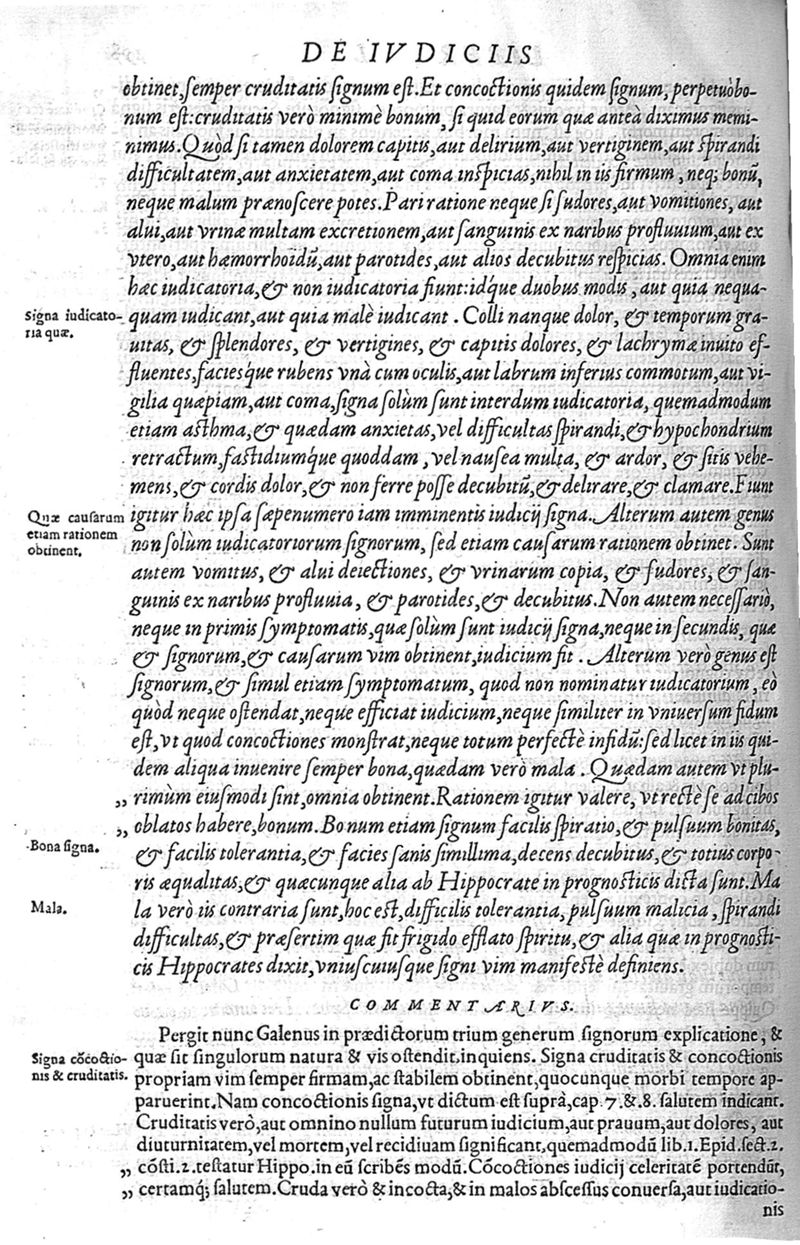 DE IVDICIIS
obtinet, semper cruditatis signum est. Et concoctionis quidem signum, perpetuò bo-
num est: cruditatis verò minimè bonum, si quid eorum quæ anteà diximus memi-
nimus. Quòd si tamen dolorem capitis, aut delirium, aut vertiginem, aut spirandi
difficultatem, aut anxietatem, aut coma inspicias, nihil in iis firmum, neq; bonū,
neque malum prænoscere potes. Pari ratione neque si sudores, aut vomitiones, aut
alui, aut vrinæ multam excretionem, aut sanguinis ex naribus profluuium, aut ex
vtero, aut hæmorrhoidū, aut parotides, aut alios decubitus respicias. Omnia enim
hæc iudicatoria, & non iudicatoria fiunt: idq́ue duobus modis, aut quia nequa-
Signa iudicato-
ria quæ.
quam iudicant, aut quia malè iudicant. Colli nanque dolor, & temporum gra-
uitas, & splendores, & vertigines, & capitis dolores, & lachrymæ inuito ef-
fluentes, faciesq́ue rubens vnà cum oculis, aut labrum inferius commotum, aut vi-
gilia quæpiam, aut coma, signa solùm sunt interdum iudicatoria, quemadmodum
etiam asthma, & quædam anxietas, vel difficultas spirandi, & hypochondrium
retractum, fastidiumq́ue quoddam, vel nausea multa, & ardor, & sitis vehe-
mens, & cordis dolor, & non ferre posse decubitū, & delirare, & clamare. Fiunt
Quæ causarum
etiam rationem
obtinent.
igitur hæc ipsa sæpenumero iam imminentis iudicij signa. Alterum autem genus
non solùm iudicatoriorum signorum, sed etiam causarum rationem obtinet. Sunt
autem vomitus, & alui deiectiones, & vrinarum copia, & sudores, & san-
guinis ex naribus profluuia, & parotides, & decubitus. Non autem necessariò,
neque in primis symptomatis, quæ solùm sunt iudicij signa, neque in secundis, quæ
& signorum, & causarum vim obtinent, iudicium fit. Alterum verò genus est
signorum, & simul etiam symptomatum, quod non nominatur iudicatorium, eò
quòd neque ostendat, neque efficiat iudicium, neque similiter in vniuersum fidum
est, vt quod concoctiones monstrat, neque totum perfectè infidū: sed licet in iis qui-
dem aliqua inuenire semper bona, quædam verò mala. Quædam autem vt plu-
„ rimùm eiusmodi sint, omnia obtinent. Rationem igitur valere, vt rectè se ad cibos
„ oblatos habere, bonum. Bonum etiam signum facilis spiratio, & pulsuum bonitas,
Bona signa.
& facilis tolerantia, & facies sanis simillima, decens decubitus, & totius corpo-
ris æqualitas, & quæcunque alia ab Hippocrate in prognosticis dicta sunt. Ma
Mala.
la verò iis contraria sunt, hoc est, difficilis tolerantia, pulsuum malicia, spirandi
difficultas, & præsertim quæ fit frigido efflato spiritu, & alia quæ in prognosti-
cis Hippocrates dixit, vniuscuiusque signi vim manifestè definiens.
COMMENTARIVS.
Pergit nunc Galenus in prædictorum trium generum signorum explicatione, &
Signa cōcoctio-
nis & cruditatis.
quæ sit singulorum natura & vis ostendit, inquiens. Signa cruditatis & concoctionis
propriam vim semper firmam, ac stabilem obtinent, quocunque morbi tempore ap-
paruerint. Nam concoctionis signa, vt dictum est suprà, cap. 7. & 8. salutem indicant.
Cruditatis verò, aut omnino nullum futurum iudicium, aut prauum, aut dolores, aut
diuturnitatem, vel mortem, vel recidiuam significant, quemadmodū lib. 1. Epid. sect. 2.
„ cōsti. 2. testatur Hippo. in eū scribēs modū. Cōcoctiones iudicij celeritatē portendūt,
„ certamq́; salutem. Cruda verò & incocta, & in malos abscessus conuersa, aut iudicatio-
nis